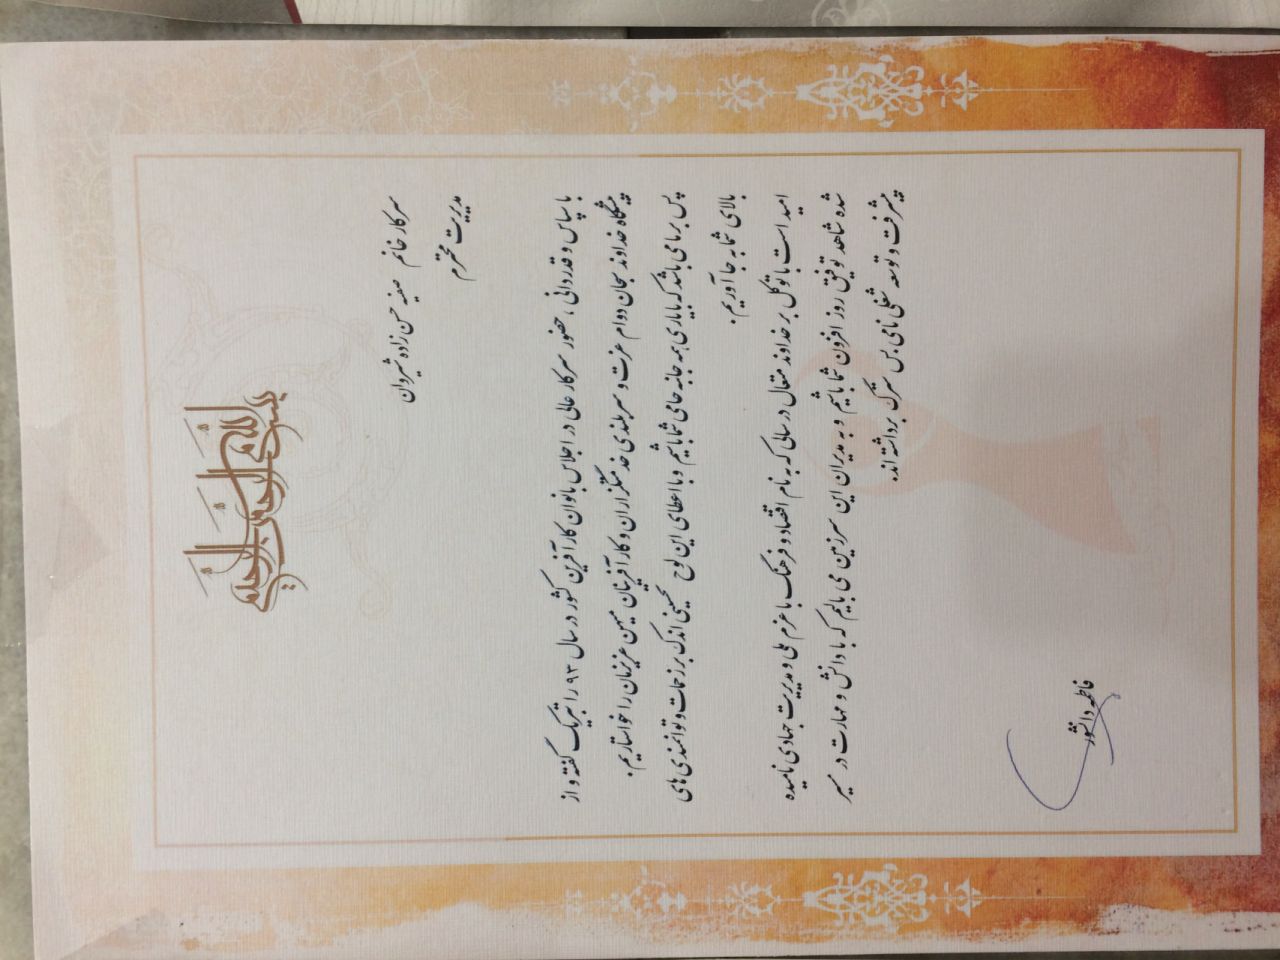 بسم الله الرحمن الرحیم
سرکار خانم صفیه حسن زاده شیروان
مدیریت محترم
با سپاس و قدردانی ، حضور سرکار عالی در اجلاس بانوان کارآفرین کشور در سال ۹۳ را تبریک گفته و از
پیشگاه خداوند سبحان دوام عزت و سربلندی خدمتگزاران و کارآفرینان میهن عزیزمان را خواستاریم.
پس بر ما می باشد که با یاری همه جانبه حامی شما باشیم و با اعطای این لوح تحسینی اندک بر زحمات و توانمندی های
بالای شما به جا آوریم.
امید است با توکل بر خداوند متعال در سالی که به نام اقتصاد و فرهنگ با عزم ملی و مدیریت جهادی نامیده
شده شاهد توفیق روز افزون شما باشیم و به مدیران این سرزمین می بالیم که با دانش و مهارت در مسیر
پیشرفت و توسعه شغلی نامی بس سترگ برداشته اند.
فاطمه دانشور